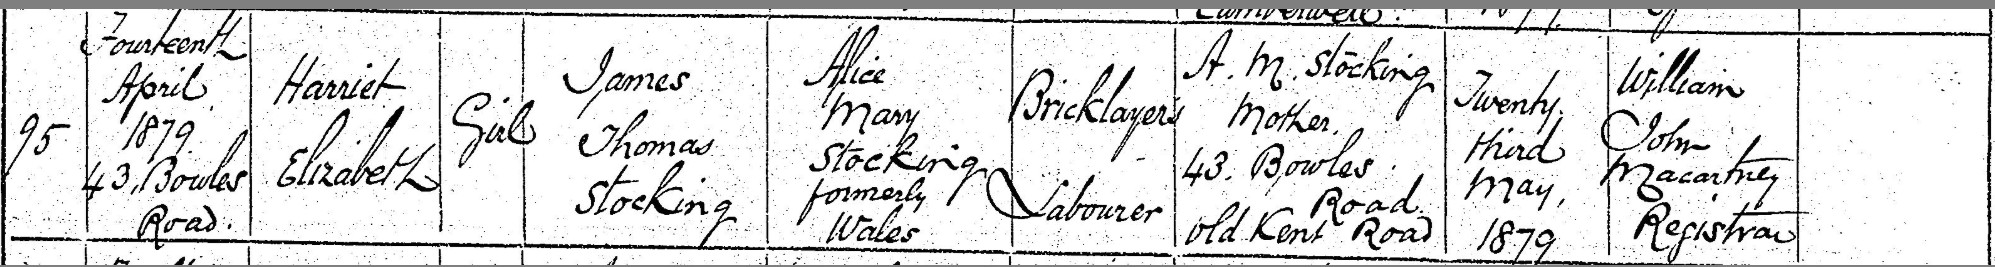 Camberwell.
1879.
95
Fourteenth
April
1879
43, Bowles
Road.
Harriet
Elizabeth
Girl
James
Thomas
Stocking
Alice
Mary
Stocking
formerly
Wales
Bricklayer's
Labourer
A. M. Stocking
Mother.
43. Bowles
Road
old Kent Road
Twenty
third
May,
1879
William
John
Macartney
Registrar